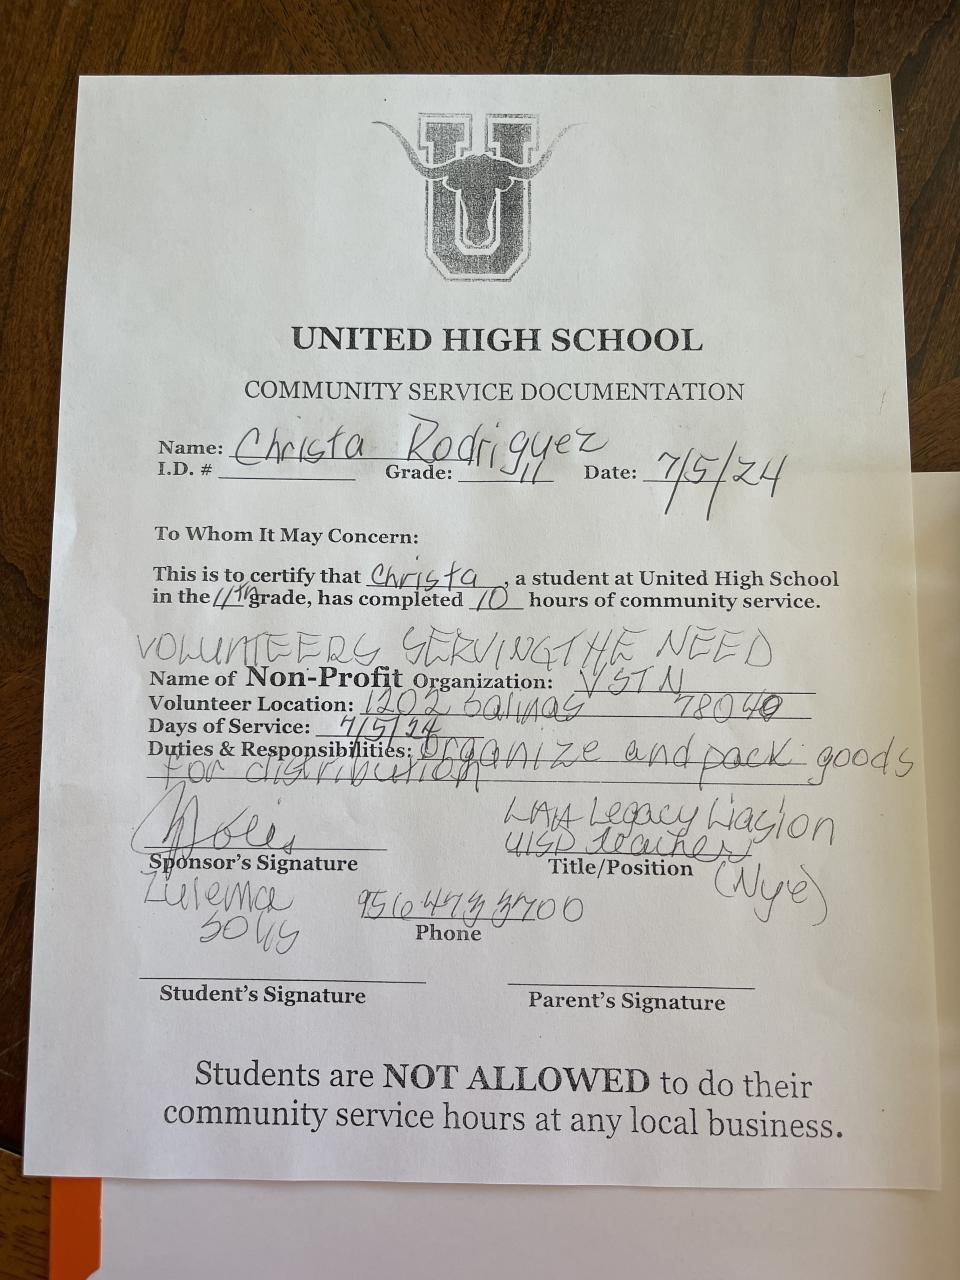 U
UNITED HIGH SCHOOL
COMMUNITY SERVICE DOCUMENTATION
Name: Christa Rodriguez
I.D. # Grade: 11 Date: 7/5/24
To Whom It May Concern:
This is to certify that Christa, a student at United High School
in the 11th grade, has completed 10 hours of community service.
VOLUNTEERS SERVING THE NEED
Name of Non-Profit Organization: VSTN
Volunteer Location: 1202 Salinas 78040
Days of Service: 7/5/24
Duties & Responsibilities: Organize and pack goods
for distribution
LAH Legacy Liasion
UISD teacher
Sponsor's Signature Title/Position (Nye)
Zulema 956 473 3700
Solis Phone
Student's Signature Parent's Signature
Students are NOT ALLOWED to do their
community service hours at any local business.